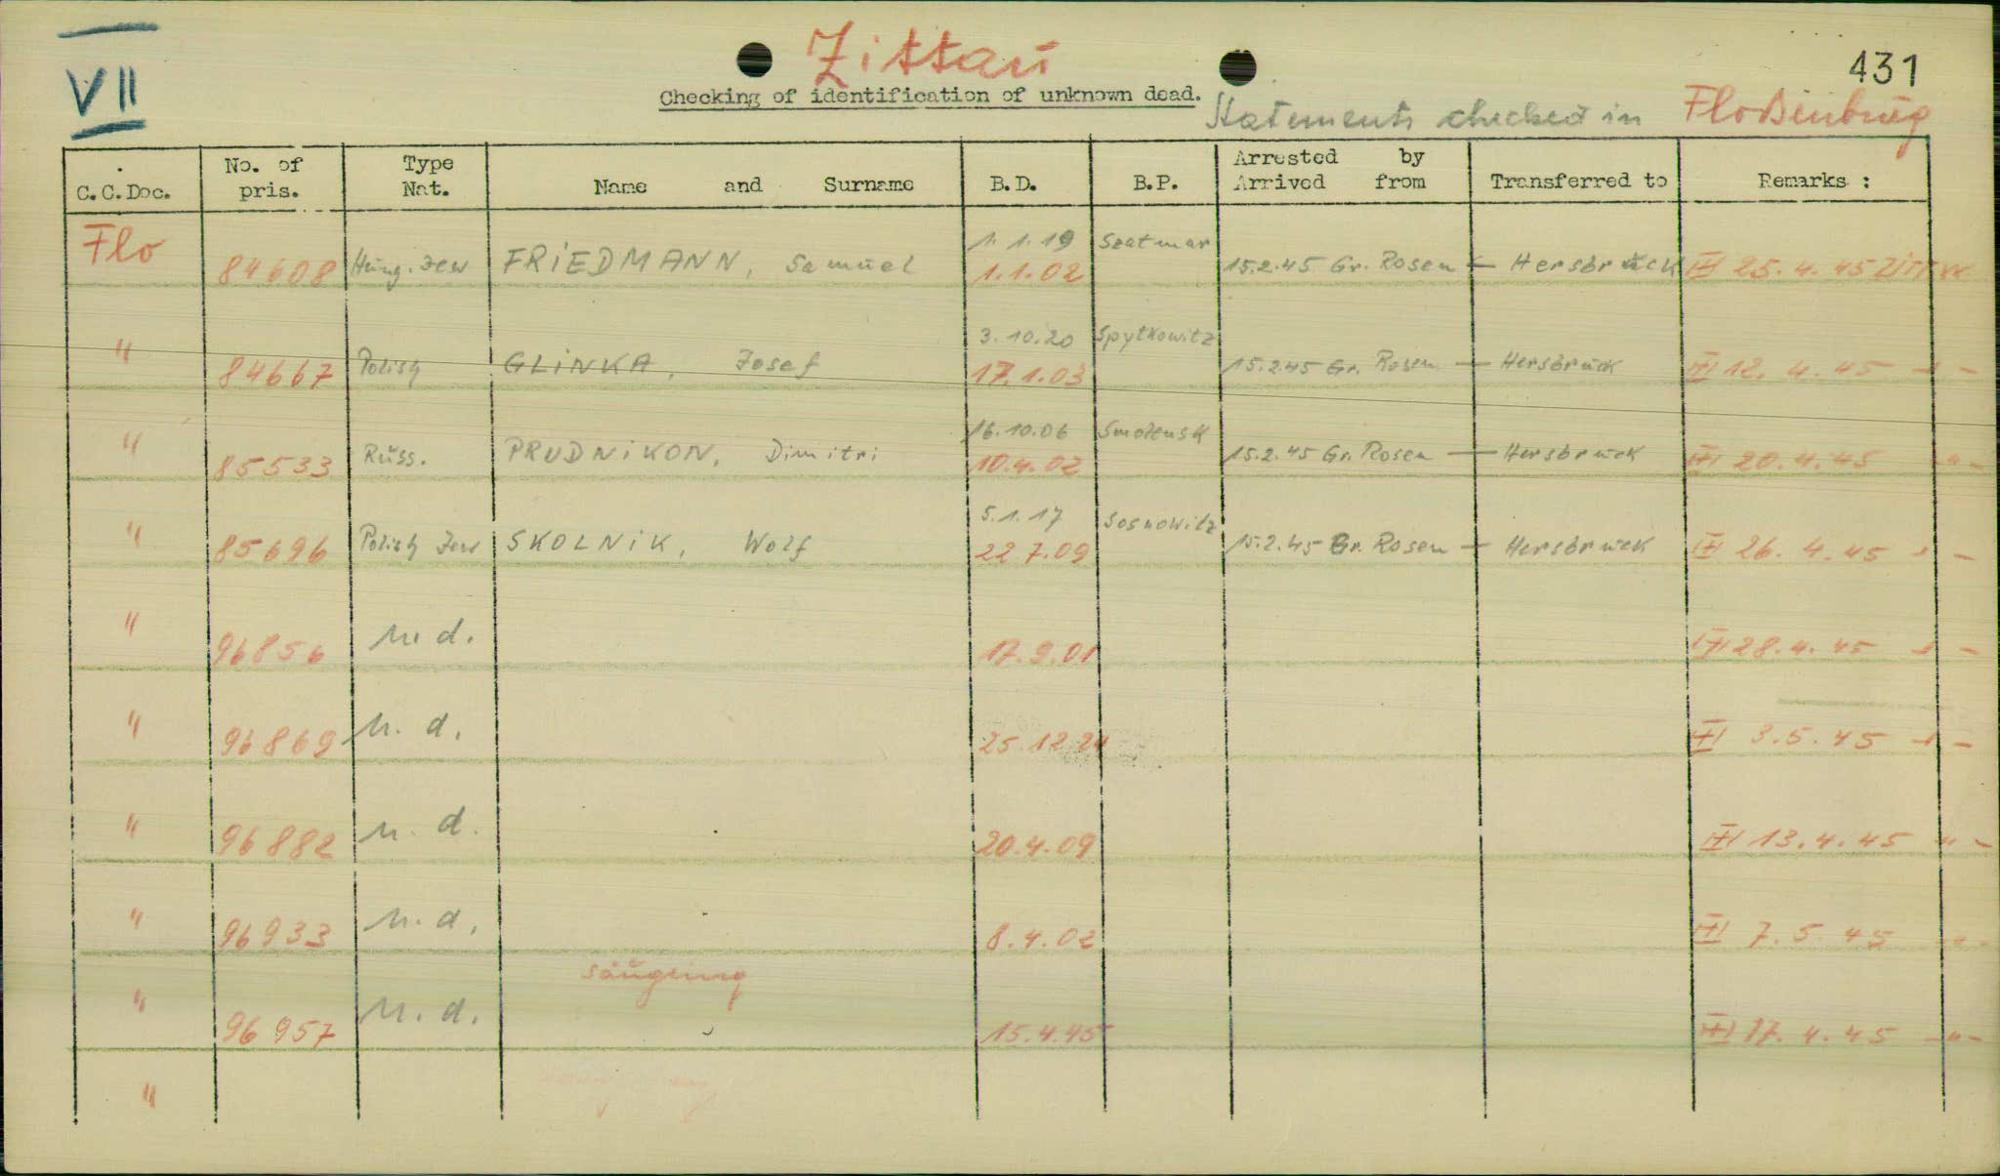 VII
Zittau
431
Checking of identification of unknown dead.
Statements checked in Floßenbürg
C.C.Doc. No. of pris. Type Nat. Name and Surname B.D. B.P. Arrested by Arrived from Transferred to Remarks :
1.1.19 Szatmar
Flo 84608 Hung. Jew FRIEDMANN, Samuel 1.1.02 15.2.45 Gr. Rosen — Hersbrück 25.4.45
3.10.20 Spytkowitz
" 84667 Polish GLINKA, Josef 17.1.03 15.2.45 Gr. Rosen — Hersbrück 12.4.45 - " -
16.10.06 Smolensk
" 85533 Russ. PRUDNIKON, Dimitri 10.4.02 15.2.45 Gr. Rosen — Hersbruck 20.4.45 - " -
5.1.17 Sosnowitz
" 85696 Polish Jew SKOLNIK, Wolf 22.7.09 15.2.45 Gr. Rosen — Hersbruck 26.4.45 - " -
" 96856 n. d. 17.9.01 28.4.45 - " -
" 96869 n. d. 25.12.24 3.5.45 - " -
" 96882 n. d. 20.4.09 13.4.45 - " -
" 96933 n. d. 8.4.02 7.5.45 - " -
Säugling
" 96957 n. d. 15.4.45 17.4.45 - " -
"